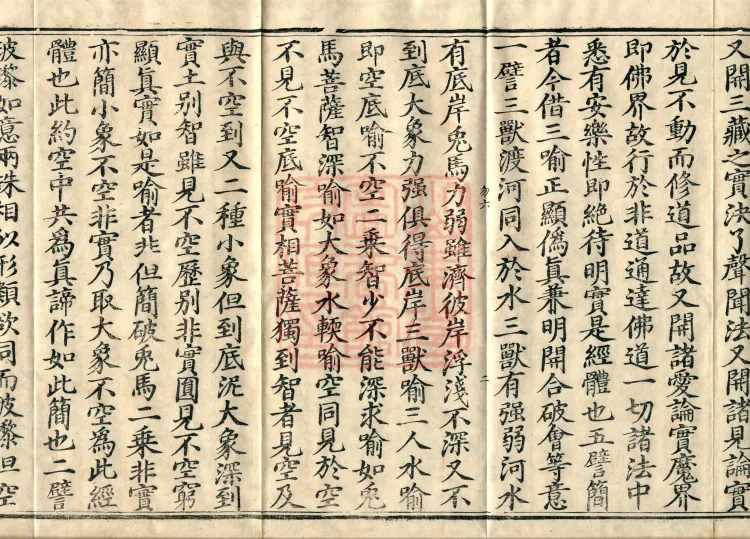 又開三藏之實法了聲聞法又開諸見論實
於見不動而修道品故又開諸愛論實魔界
即佛界故行於非道通達佛道一切諸法中
悉有安樂性即絕待明實是經體也五譬簡
者今借三喻正顯偽真兼明開合破會等意
一譬三獸渡河同入於水三獸有强弱河水
有底岸兔馬力弱雖濟彼岸浮淺不深又不
到底大象力强俱得底岸三獸喻三人水喻
即空底喻不空二乗智少不能深求喻如兔
馬菩薩智深喻如大象水輭喻空同見於空
不見不空底喻實相菩薩獨到智者見空及
與不空到又二種小象但到底泥大象深到
實土别智雖見不空歷别非實圓見不空窮
顯真實如是喻者非但簡破兔馬二乗非實
亦簡小象不空非實乃取大象不空為此經
體也此約空中共為真諦作如此簡也二譬
玻瓈如意兩珠相似形類欲同而玻瓈但空
勿六
二